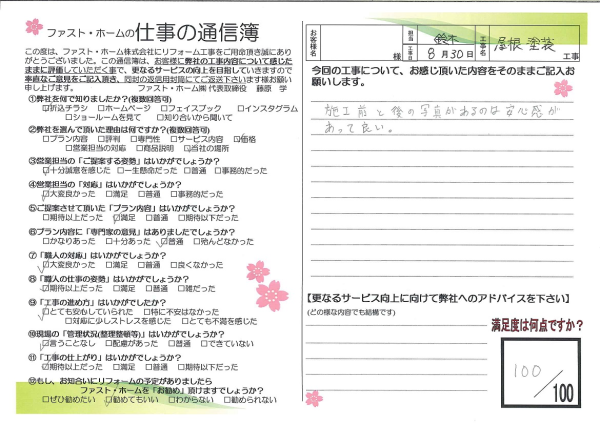 ファスト・ホームの仕事の通信簿
この度は、ファスト・ホーム株式会社にリフォーム工事をご用命頂き誠にあり
がとうございました。この通信簿は、お客様に弊社の工事内容について感じた
ままに評価していただく事で、更なるサービスの向上を目指していきますので
率直なご意見をご記入頂き、同封の返信用封筒にてご返送下さいます様お願い
申し上げます。 ファスト・ホーム㈱ 代表取締役 藤原 学
①弊社を何で知りましたか?(複数回答可)
☑折込チラシ □ホームページ □フェイスブック □インスタグラム
□ショールームを見て □知り合いから聞いて
②弊社を選んで頂いた理由は何ですか?(複数回答可)
□プラン内容 □評判 □専門性 □サービス内容 ☑価格
□営業担当の対応 □商品説明 ☑当社の場所
③営業担当の「ご提案する姿勢」はいかがでしょうか?
☑十分誠意を感じた □一生懸命だった □普通 □事務的だった
④営業担当の「対応」はいかがでしょうか?
☑大変良かった □満足 □普通 □事務的だった
⑤ご提案させて頂いた「プラン内容」はいかがでしょうか?
□期待以上だった ☑満足 □普通 □期待以下だった
⑥プラン内容に「専門家の意見」はありましたでしょうか?
□かなりあった □十分あった ☑普通 □殆んどなかった
⑦「職人の対応」はいかがでしょうか?
☑大変良かった □満足 □普通 □良くなかった
⑧「職人の仕事の姿勢」はいかがでしょうか?
☑期待以上だった □満足 □普通 □雑だった
⑨「工事の進め方」はいかがでしたか?
☑とても安心していられた □特に不安はなかった
□対応に少しストレスを感じた □とても不満を感じた
⑩現場の「管理状況(整理整頓等)」はいかがでしょうか?
☑言うことなし □配慮があった □普通 □できていない
⑪「工事の仕上がり」はいかがでしょうか?
☑期待以上だった □満足 □普通 □期待以下だった
⑫もし、お知合いにリフォームの予定がありましたら
ファスト・ホームを「お勧め」頂けますでしょうか?
□ぜひ勧めたい ☑勧めてもいい □わからない □勧められない
お客様名 様 担当 鈴木 工事日 8月30日 工事名 屋根塗装 工事
今回の工事について、お感じ頂いた内容をそのままご記入お
願いします。
施工前と後の写真があるのは安心感が
あって良い。
【更なるサービス向上に向けて弊社へのアドバイスを下さい】
(どの様な内容でも結構です)
満足度は何点ですか?
100/100